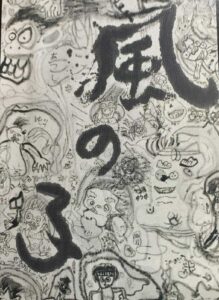 風の子